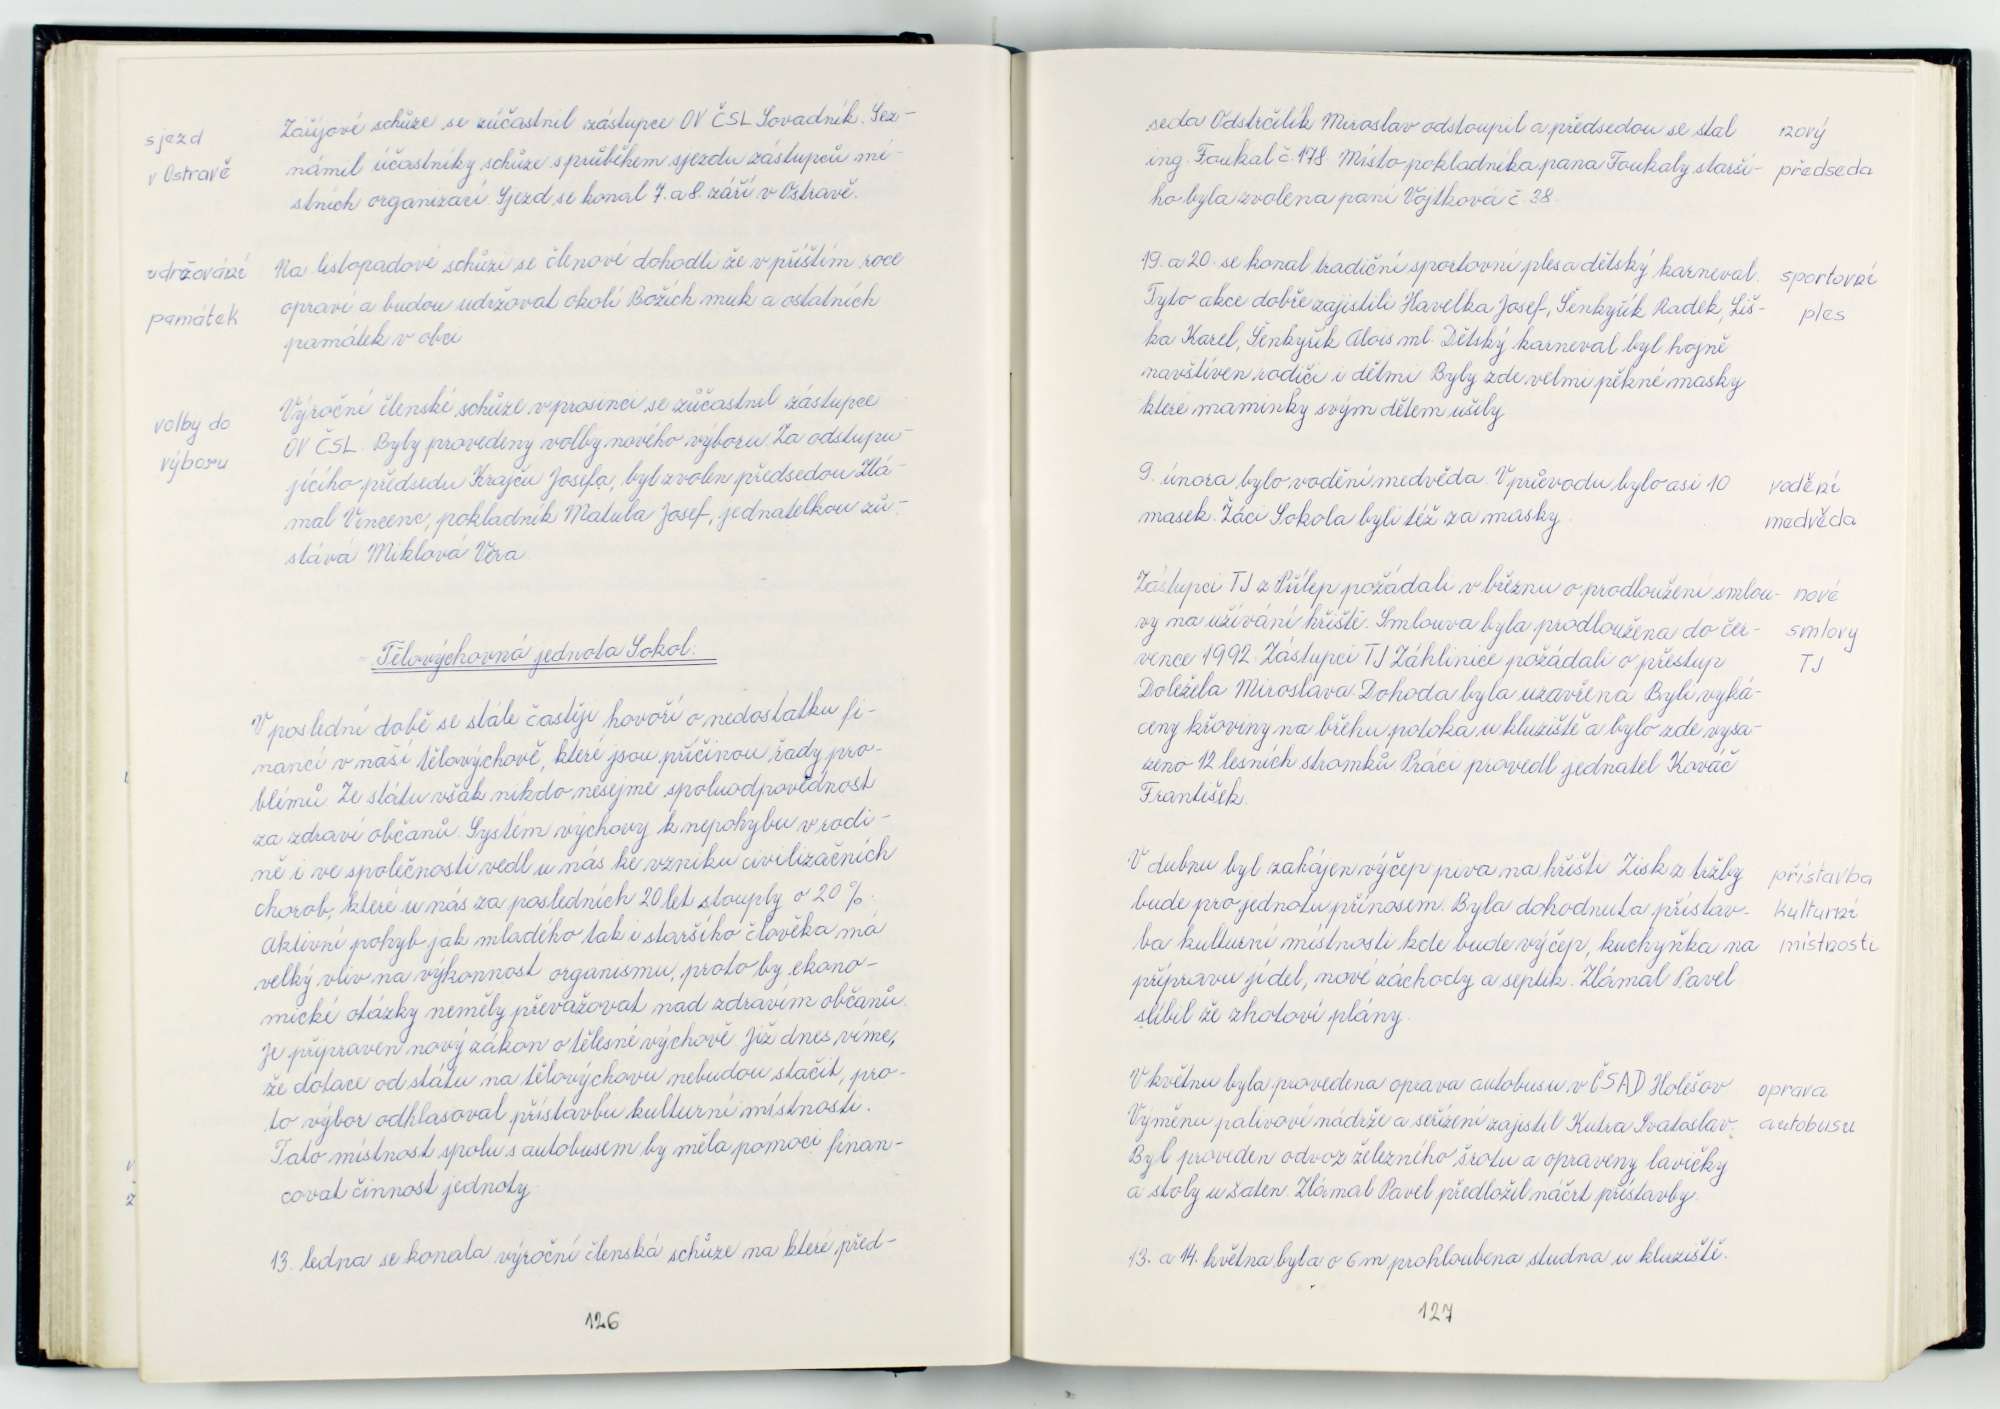 sjezd
v Ostravě
Zářijové schůze se zúčastnil zástupce OV ČSL Sovadník. Sez-
námil účastníky schůze s průběhem sjezdu zástupců mí-
stních organizací. Sjezd se konal 7. a 8. září v Ostravě.
udržování
památek
Na listopadové schůzi se členové dohodli že v příštím roce
opraví a budou udržovat okolí Božích muk a ostatních
památek v obci
volby do
výboru
Výroční členské schůze v prosinci se zůčastnil zástupce
OV ČSL. Byly provedeny volby nového výboru. Za odstupu-
jícího předsedu Krajču Josefa, byl zvolen předsedou Zlá-
mal Vincenc, pokladník Matula Josef, jednatelkou zů-
stává Miklová Věra
Tělovýchovná jednota Sokol.
V poslední době se stále častěji hovoří o nedostatku fi-
nancí v naší tělovýchově, které jsou příčinou řady pro-
blémů. Ze státu však nikdo nesejme spoluodpovědnost
za zdraví občanů. Systém výchovy k nepohybu v rodi-
ně i ve společnosti vedl u nás ke vzniku civilizačních
chorob, které u nás za posledních 20 let stouply o 20 %.
Aktivní pohyb jak mladého tak i staršího člověka má
velký vliv na výkonnost organismu, proto by ekono-
mické otázky neměly převažovat nad zdravím občanů.
Je připraven nový zákon o tělesné výchově. Již dnes víme,
že dotace od státu na tělovýchovu nebudou stačit, pro-
to výbor odhlasoval přístavbu kulturní místnosti.
Tato místnost spolu s autobusem by měla pomoci finan-
covat činnost jednoty.
13. ledna se konala výroční členská schůze na které před-
126
seda Odstrčilík Miroslav odstoupil a předsedou se stal
ing. Foukal č. 178. Místo pokladníka pana Foukaly starší-
ho byla zvolena paní Vojtková č. 38.
nový
předseda
19. a 20. se konal tradiční sportovní ples a dětský karneval.
Tyto akce dobře zajistili Havelka Josef, Šenkyřík Radek, Liš-
ka Karel, Šenkyřík Alois ml. Dětský karneval byl hojně
navštíven rodiči i dětmi. Byly zde velmi pěkné masky
které maminky svým dětem ušily
sportovní
ples
9. února bylo vodění medvěda. V průvodu bylo asi 10
masek. Žáci Sokola byli též za masky.
vodění
medvěda
Zástupci TJ z Přílep požádali v březnu o prodloužení smlou-
vy na užívání hřiště. Smlouva byla prodloužena do čer-
vence 1992. Zástupci TJ Záhlinice požádali o přestup
Doležela Miroslava. Dohoda byla uzavřena. Byli vyká-
ceny křoviny na břehu potoka u kluziště a bylo zde vysa-
zeno 12 lesních stromků. Práci provedl jednatel Kováč
František.
nové
smlovy
TJ
V dubnu byl zahájen výčep piva na hřišti. Zisk z tržby
bude pro jednotu přínosem. Byla dohodnuta přístav-
ba kulturní místnosti kde bude výčep, kuchyňka na
přípravu jídel, nové záchody a septik. Zlámal Pavel
slíbil že zhotoví plány.
přístavba
kulturní
místnosti
V květnu byla provedena oprava autobusu v ČSAD Holešov
Vyměnu palivové nádrže a seřízení zajistil Kutra Svatoslav.
Byl proveden odvoz železného šrotu a opraveny lavičky
a stoly u šaten. Zlámal Pavel předložil náčrt přístavby.
oprava
autobusu
13. a 14. května byla o 6 m prohloubena studna u kluziště.
127